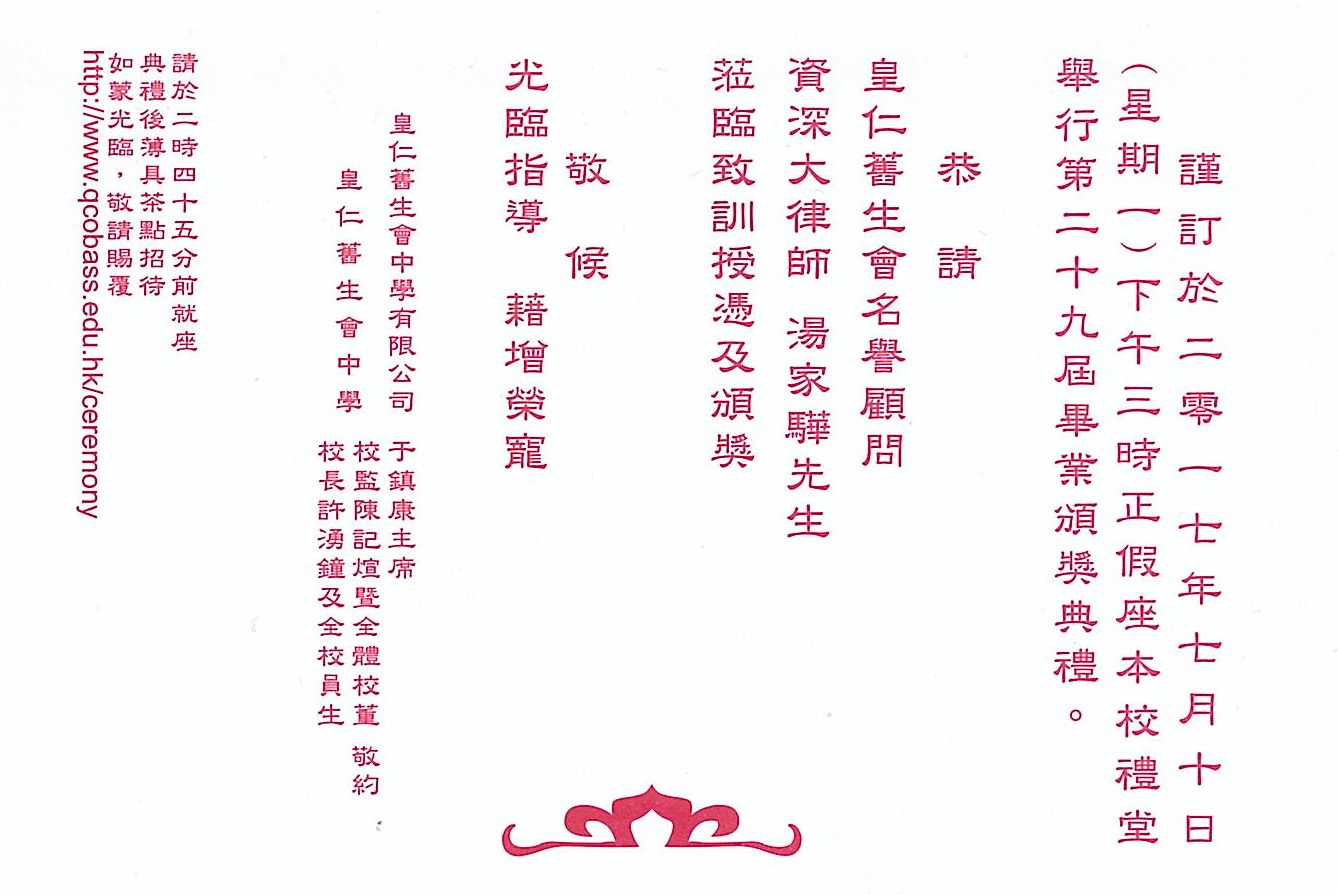 謹訂於二零一七年七月十日
（星期一）下午三時正假座本校禮堂
舉行第二十九屆畢業頒獎典禮。
恭請
皇仁舊生會名譽顧問
資深大律師 湯家驊先生
蒞臨致訓授憑及頒獎
敬候
光臨指導 藉增榮寵
皇仁舊生會中學有限公司 于鎮康主席
皇仁舊生會中學 校監陳記煊暨全體校董 敬約
校長許湧鐘及全校員生
請於二時四十五分前就座
典禮後薄具茶點招待
如蒙光臨，敬請賜覆
http://www.qcobass.edu.hk/ceremony